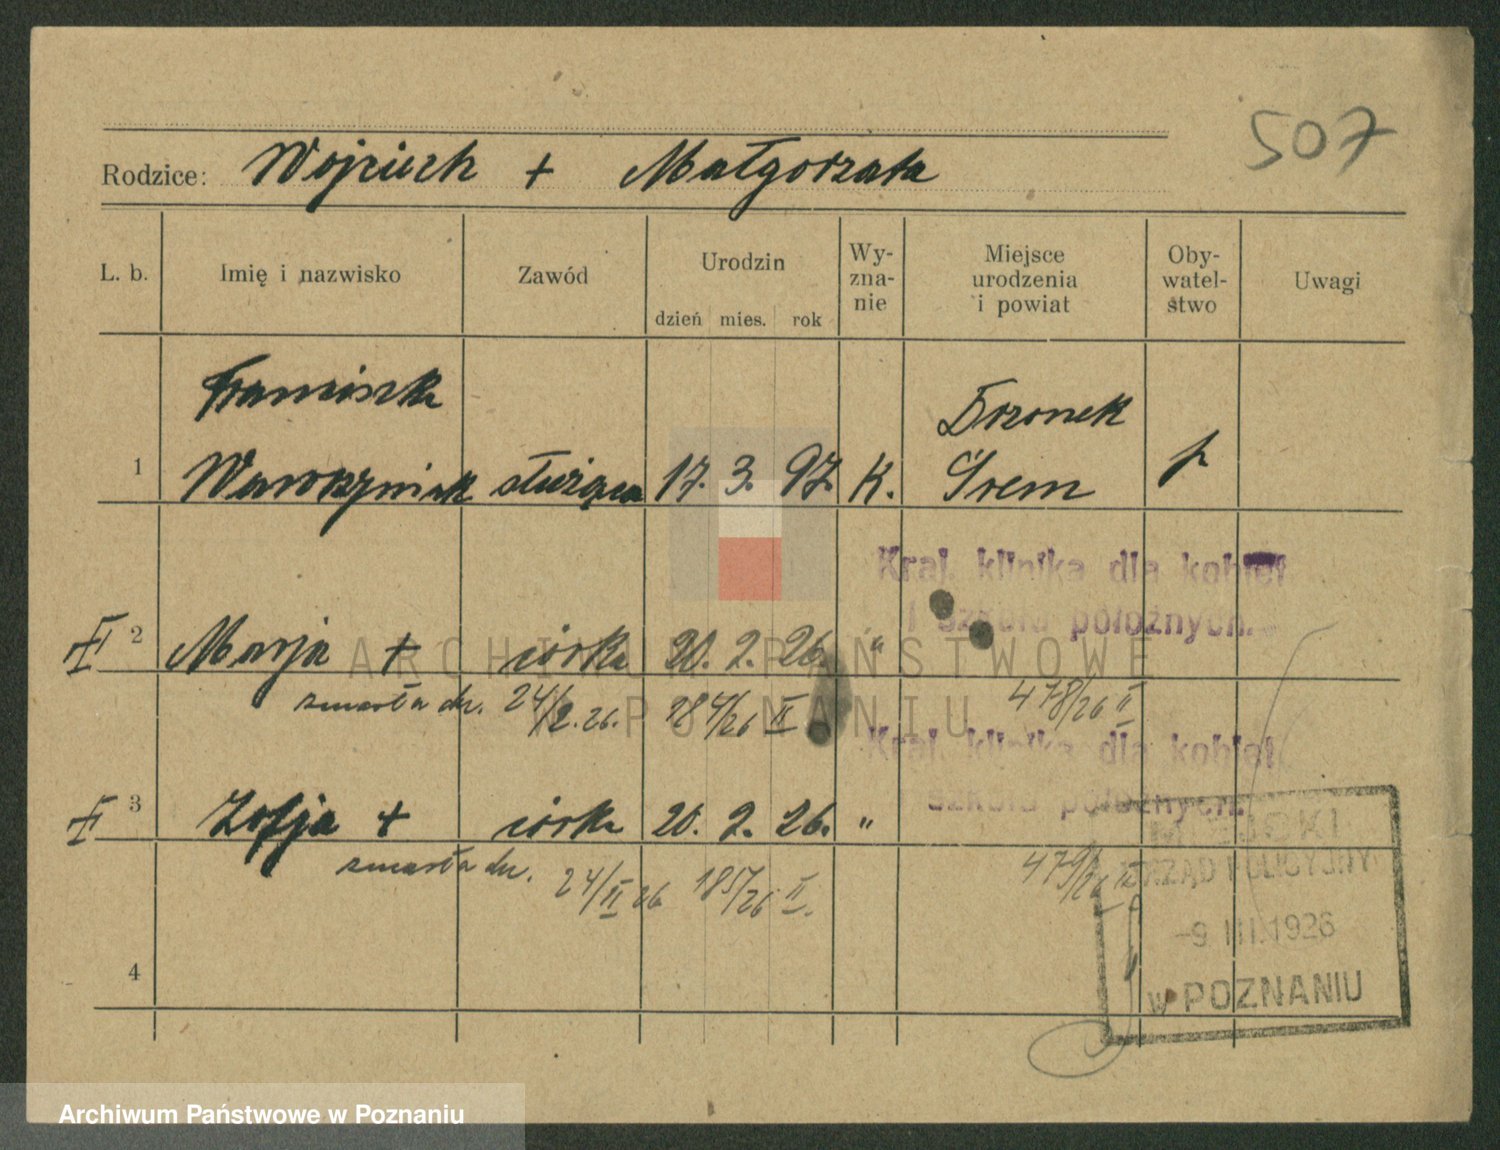 507
Rodzice: Wojciech + Małgorzata
L. b. Imię i nazwisko Zawód Urodzin dzień mies. rok Wy-zna-nie Miejsce urodzenia i powiat Oby-watel-stwo Uwagi
Franciszka Drzonek
1 Wawrzyniak służąca 17. 3. 97. K. Śrem p
Kraj. klinika dla kobiet
i szkoła położnych.
2 Marja + córka 20. 2. 26. "
zmarła dn. 24/2.26. 184/26 II 478/26 II
ARCHIWUM PAŃSTWOWE
POZNANIU
Kraj. klinika dla kobiet
szkoła położnych.
3 Zofja + córka 20. 2. 26. "
zmarła dn. 24/II 26 185/26 II. 479/26 II
MIEJSKI
URZĄD POLICYJNY
-9 III.1926
w POZNANIU
4
Archiwum Państwowe w Poznaniu